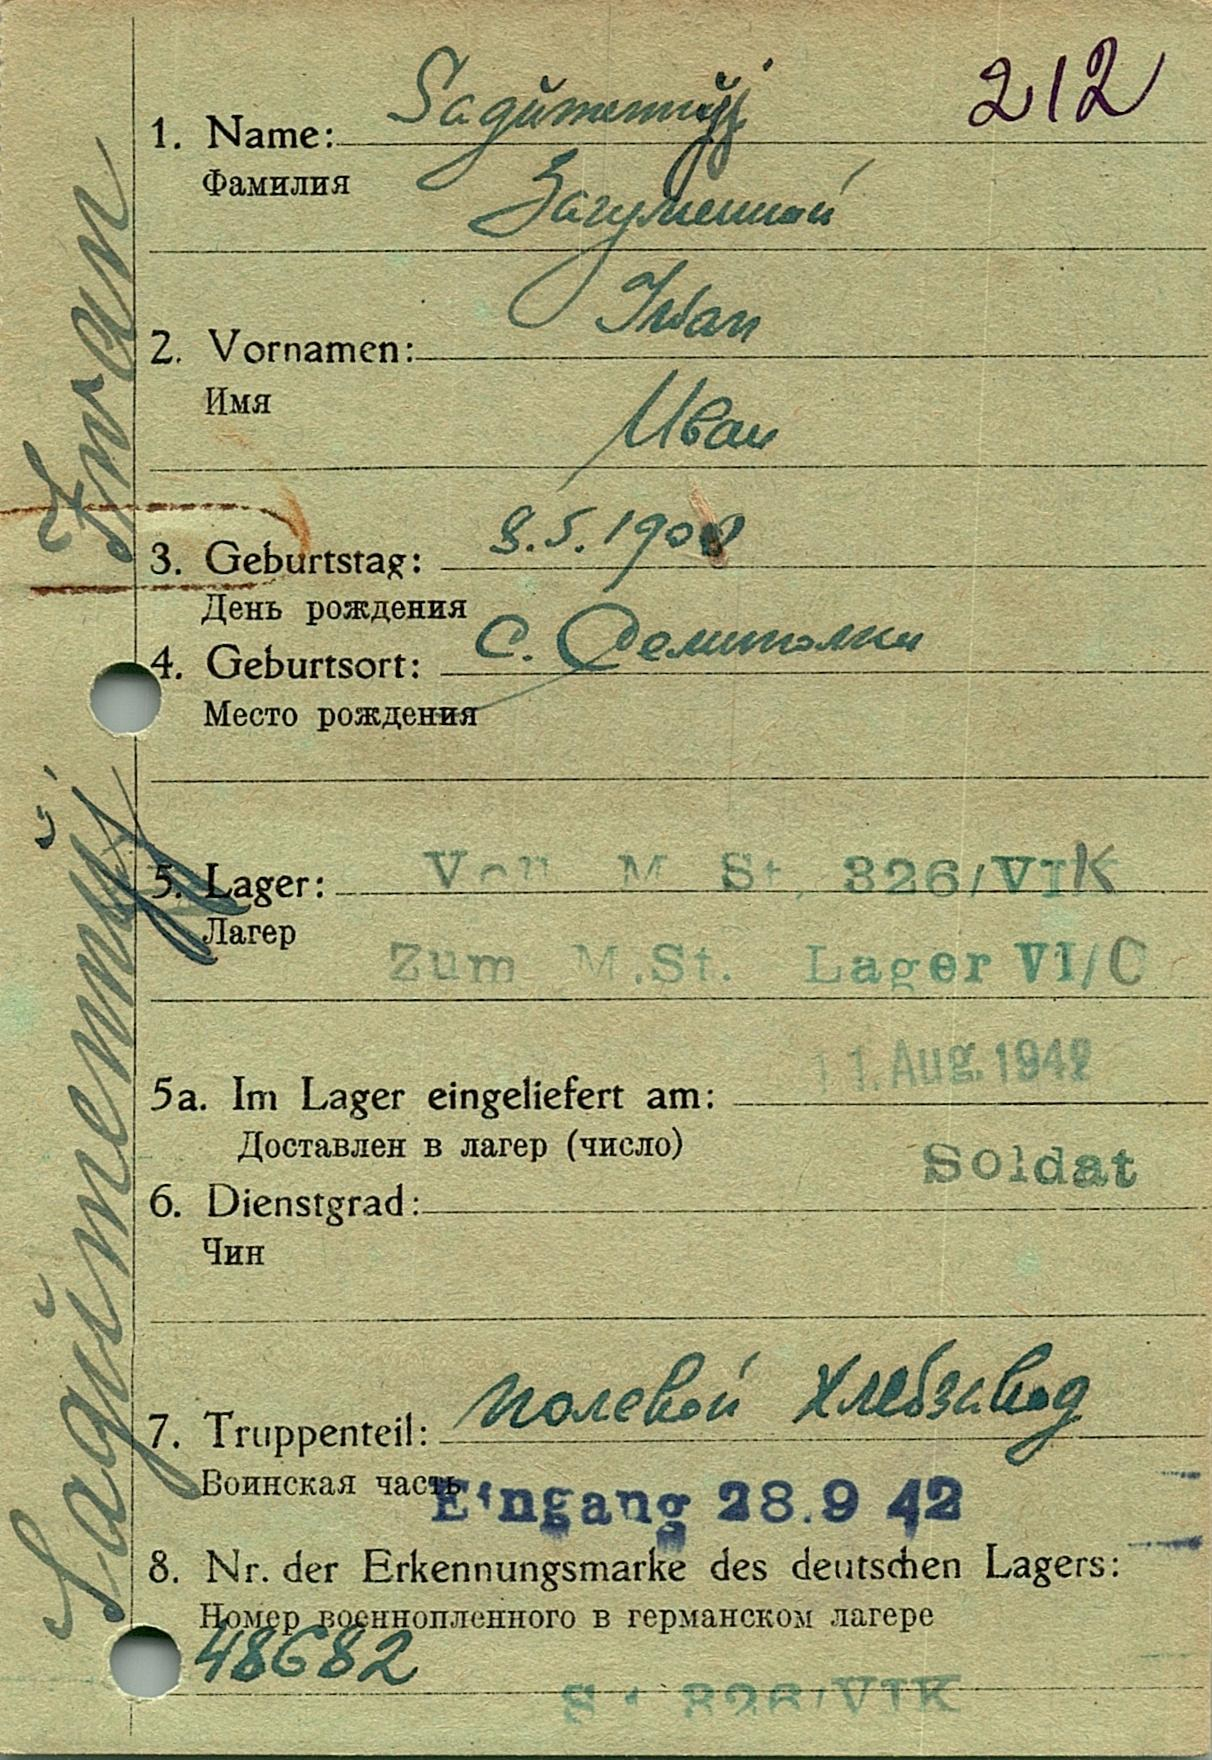 212
1. Name: Sagŭmennyj
Фамилия
Загуменный
2. Vornamen: Iwan
Имя
Иван
3. Geburtstag: 8.5.1900
День рождения
4. Geburtsort: с. Семиполки
Место рождения
5. Lager: Von M. St. 326/VIK
Лагер
Zum M.St. Lager VI/C
5a. Im Lager eingeliefert am: 11. Aug. 1942
Доставлен в лагер (число)
Soldat
6. Dienstgrad:
Чин
7. Truppenteil: полевой хлебзавод
Воинская часть
Eingang 28.9 42
8. Nr. der Erkennungsmarke des deutschen Lagers:
Номер военнопленного в германском лагере
48682
St 326/VIK
Sagŭmennyj Iwan